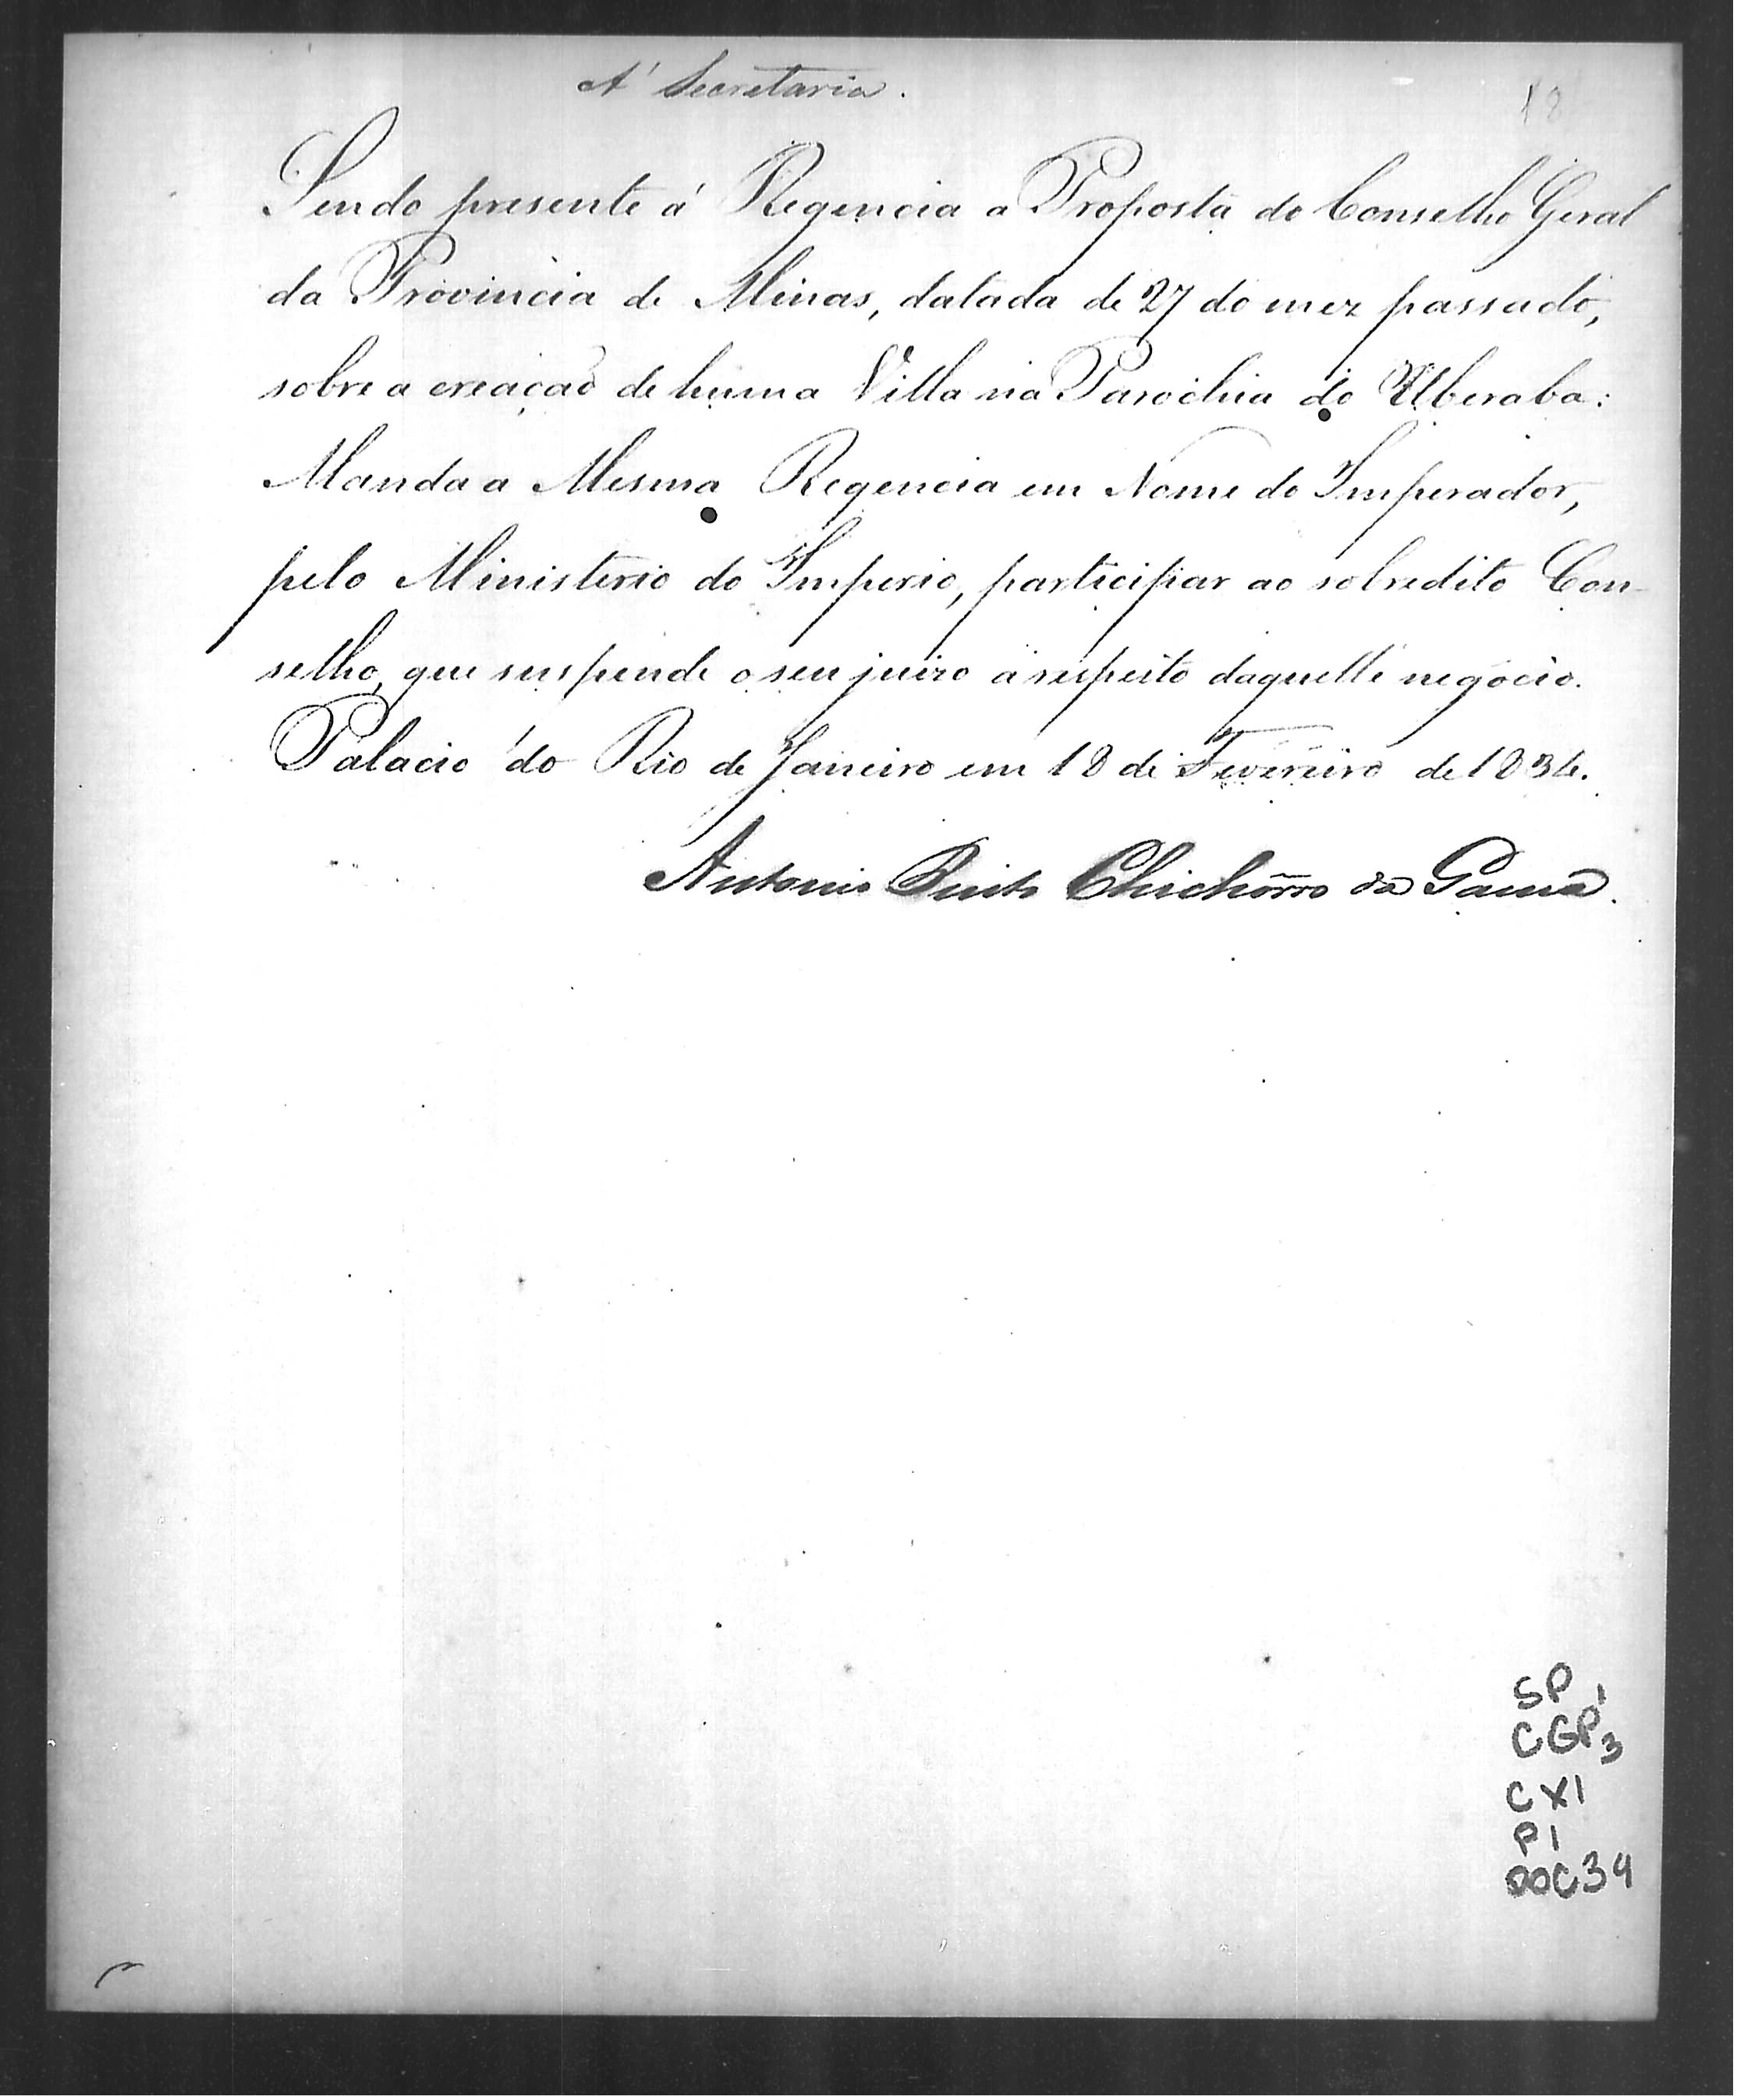 A' Secretaria.
18
Sendo presente á Regencia a Proposta do Conselho Geral
da Provincia de Minas, datada de 27 do mez passado,
sobre a creação de huma Villa na Parochia do Uberaba:
Manda a Mesma Regencia em Nome do Imperador,
pelo Ministerio do Imperio, participar ao sobredito Con-
selho, que suspende o seu juizo a respeito daquelle negocio.
Palacio do Rio de Janeiro em 18 de Fevereiro de 1834.
Antonio Pinto Chichorro da Gama.
SP 1
CGP 3
CX1
P1
DOC34